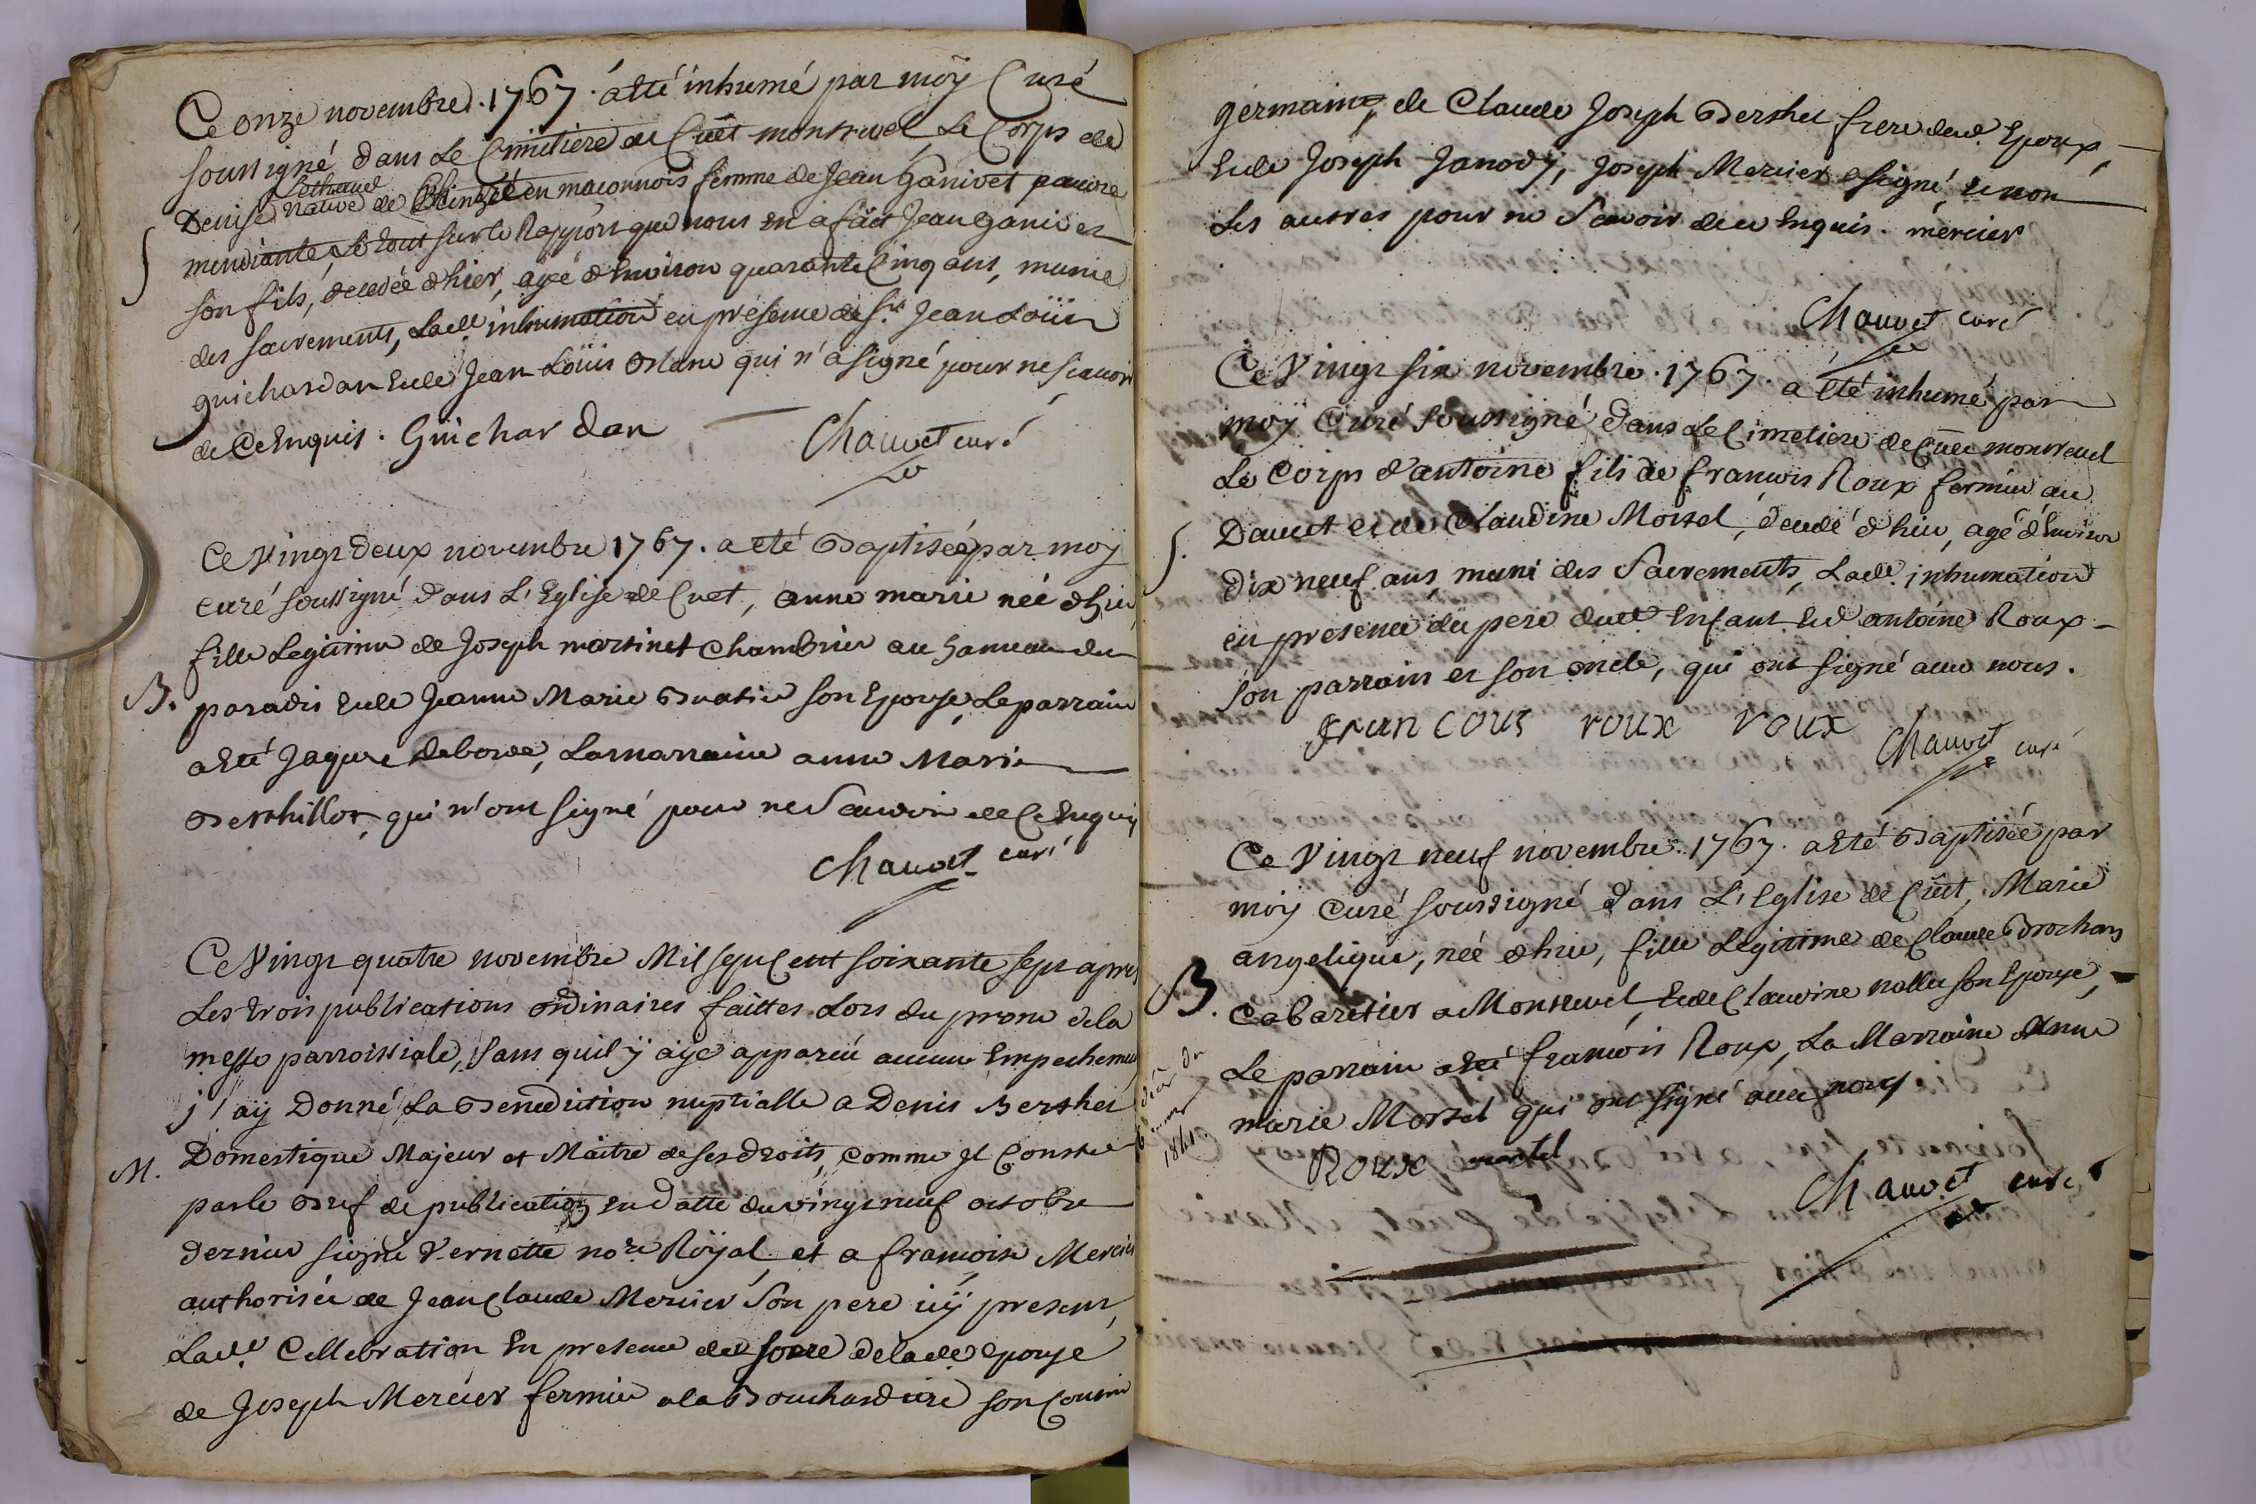 Ce onze novembre .1767. a été inhumé par moÿ Curé
soussigné dans Le Cimetiere de Cuët montrevel Le Corps de
Denise Lothaud native de en maconnois femme de Jean Ganivet pauvre
S
mendiante, Le tout sur le Rapport que nous en a fait Jean Ganivet
son fils, decedée d'hier, agée d'Environ quarante Cinq ans, munie
des sacrements, Lade. inhumation en présence de Sr. Jean Loüis
guichardan Et de Jean Loüis qui n'a signé pour ne scavoir
de Ce Enquis. Guichardan Chauvet curé
Ce Vingt deux novembre 1767. a eté Baptisée par moy
curé soussigné dans L'Eglise de Cuet, anne marie née d'hier
fille Legitime de Joseph martinet chambrier au hameau du
B. paradis Et de Jeanne Marie Buatier son Epouse, Le parrain
a Eté Jaque Deborde, La marraine anne Marie
Berthillot, qui n'ont signé pour ne Scavoir de Ce Enquis
Chauvet curé
Ce Vingt quatre novembre Mil sept Cent soixante sept apres
Les trois publications ordinaires faittes Lors du prone de la
messe parroissiale, sans quil ÿ aÿe apparü aucun Empechement
j'aÿ Donné La Benediction nuptialle a Denis Berthet
M. Domestique Majeur et Maitre de ses droits, comme Il Conste
par le Bref de publication En Datte du vingt neuf octobre
dernier signé Vernette nore. Roÿal, et a francoise Mercier
authorisée de Jean Claude Mercier Son pere icÿ present,
Lade. Cellebration En presence du pere de lade Epouse
de Joseph Mercier fermier a la Bouchardiere son Cousin
germain, de Claude Joseph Berthet frere dud. Epoux,
Et de Joseph Janody, Joseph Mercier a signé, et non
Les autres pour ne Scavoir de ce Enquis. mercier
Chauvet curé
Ce Vingt six novembre .1767. a été inhumé par
moÿ Curé soussigné dans Le Cimetiere de Cuët montrevel
Le Corps d'antoine fils de francois Roux fermier au
S. Daucet et de Claudine Morsel, decedé d'hier, agé d'Environ
dix neuf ans, muni des Sacrements, Lade. inhumation
en presence du pere dudt Enfant Et d'antoine Roux
son parrain et son oncle, qui ont signé avec nous.
francous roux roux Chauvet curé
Ce Vingt neuf novembre .1767. a Eté Baptisée par
moÿ Curé soussigné dans L'Eglise de Cuët, Marie
angelique, née d'hier, fille Legitime de Claude Brochard
B. Cabaretier a Montrevel, Et de Claudine nallet son Epouse,
Le parrain a Eté francois Roux, La Marraine Anne
marie Morsel qui ont signé avec nous
1841.
Roux Chauvet curé